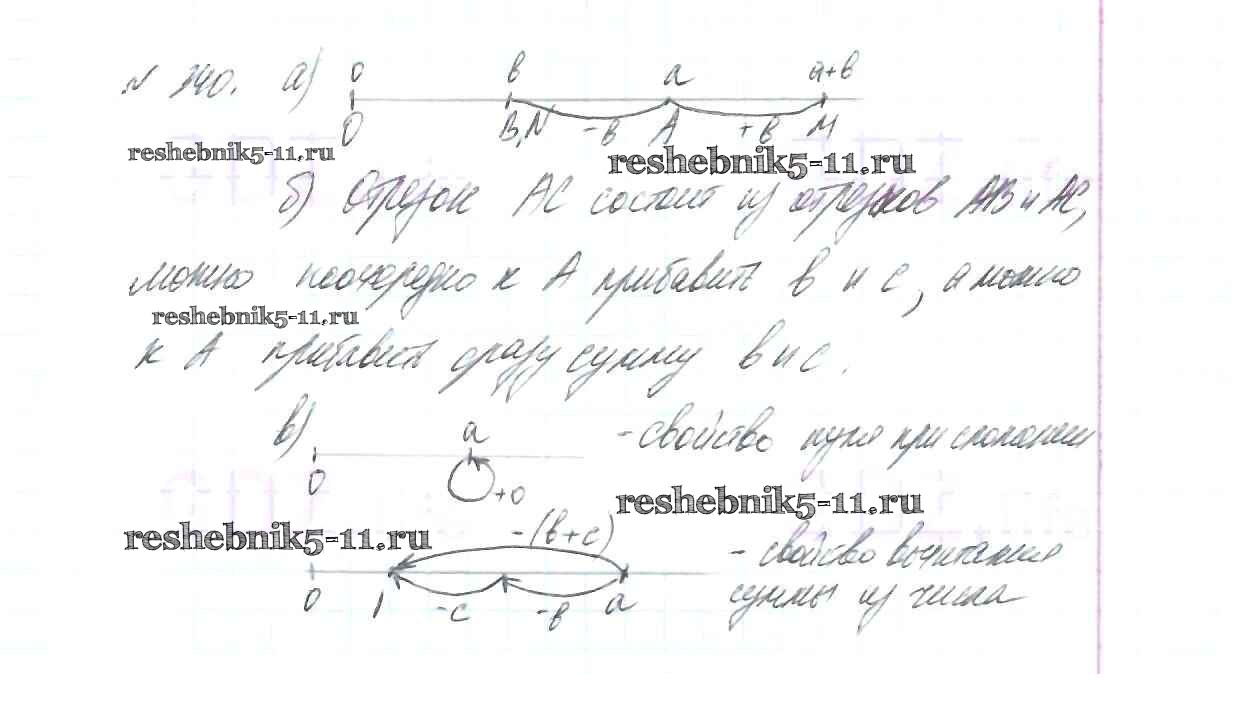 N 340. а) 0 в а а+в
0 B,N -в A +в M
reshebnik5-11.ru reshebnik5-11.ru
б) Отрезок АС состоит из отрезков АВ и АС,
можно поочередно к А прибавить в и с, а можно
reshebnik5-11.ru
к А прибавить сразу сумму в и с.
в) а - свойство нуля при сложении
0 +0
reshebnik5-11.ru
reshebnik5-11.ru -(в+с) - свойство вычитания
0 1 -с -в а суммы из числа